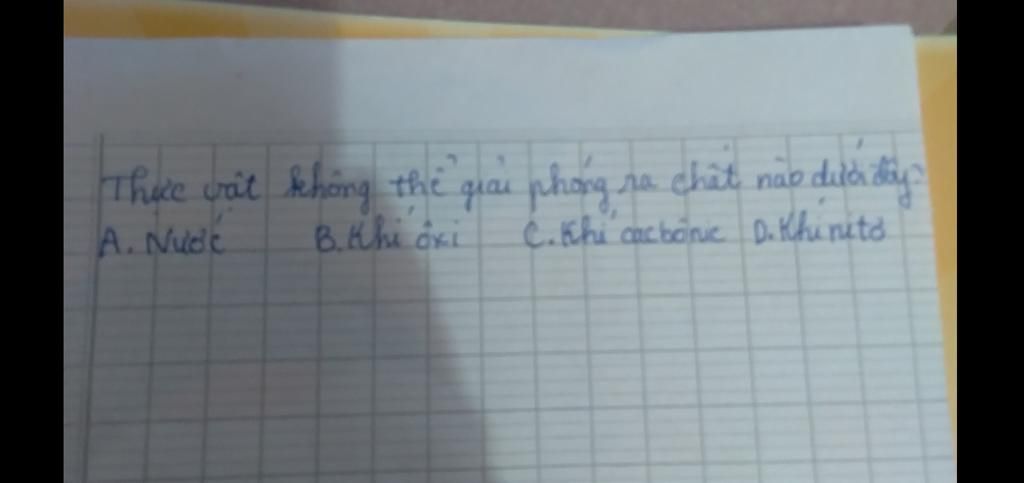 Thực vật không thể giải phóng ra chất nào dưới đây?
A. Nước B. Khí ôxi C. Khí cacbônic D. Khí nitơ